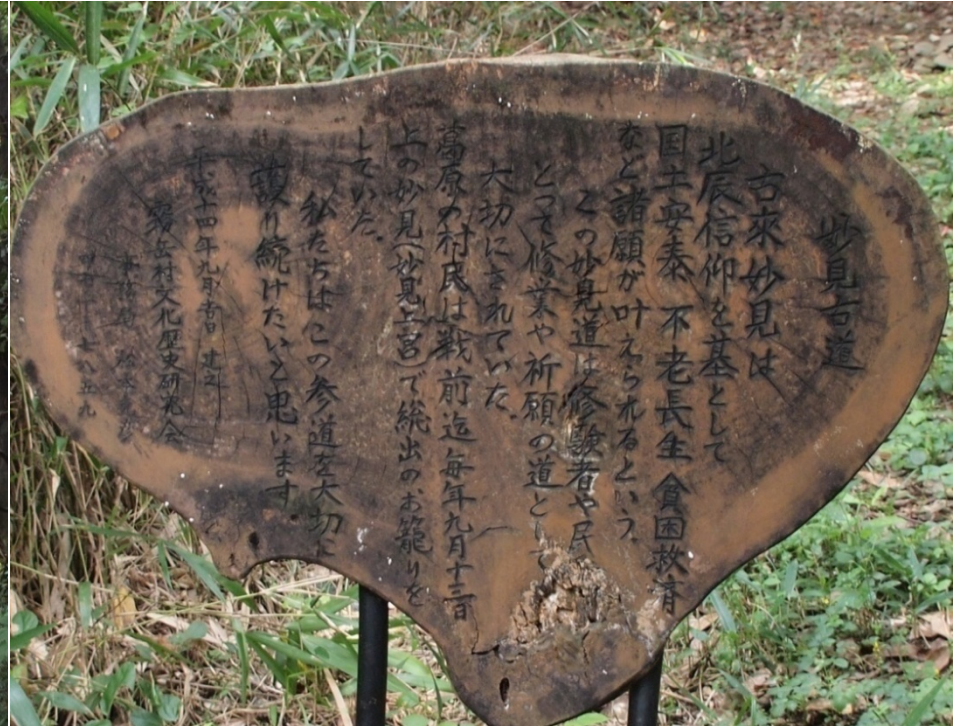 妙見古道
古来妙見は
北辰信仰を基として
国土安泰 不老長生 貧困救済
など諸願が叶えられるという。
この妙見道は修験者や民
とって修業や祈願の道として
大切にされていた。
葛原の村民は戦前迄毎年九月十三日
上の妙見(妙見上宮)で総出のお籠りを
していた。
私たちはこの参道を大切に
護り続けたいと思います。
平成十四年九月 建立
霧岳村文化歴史研究会